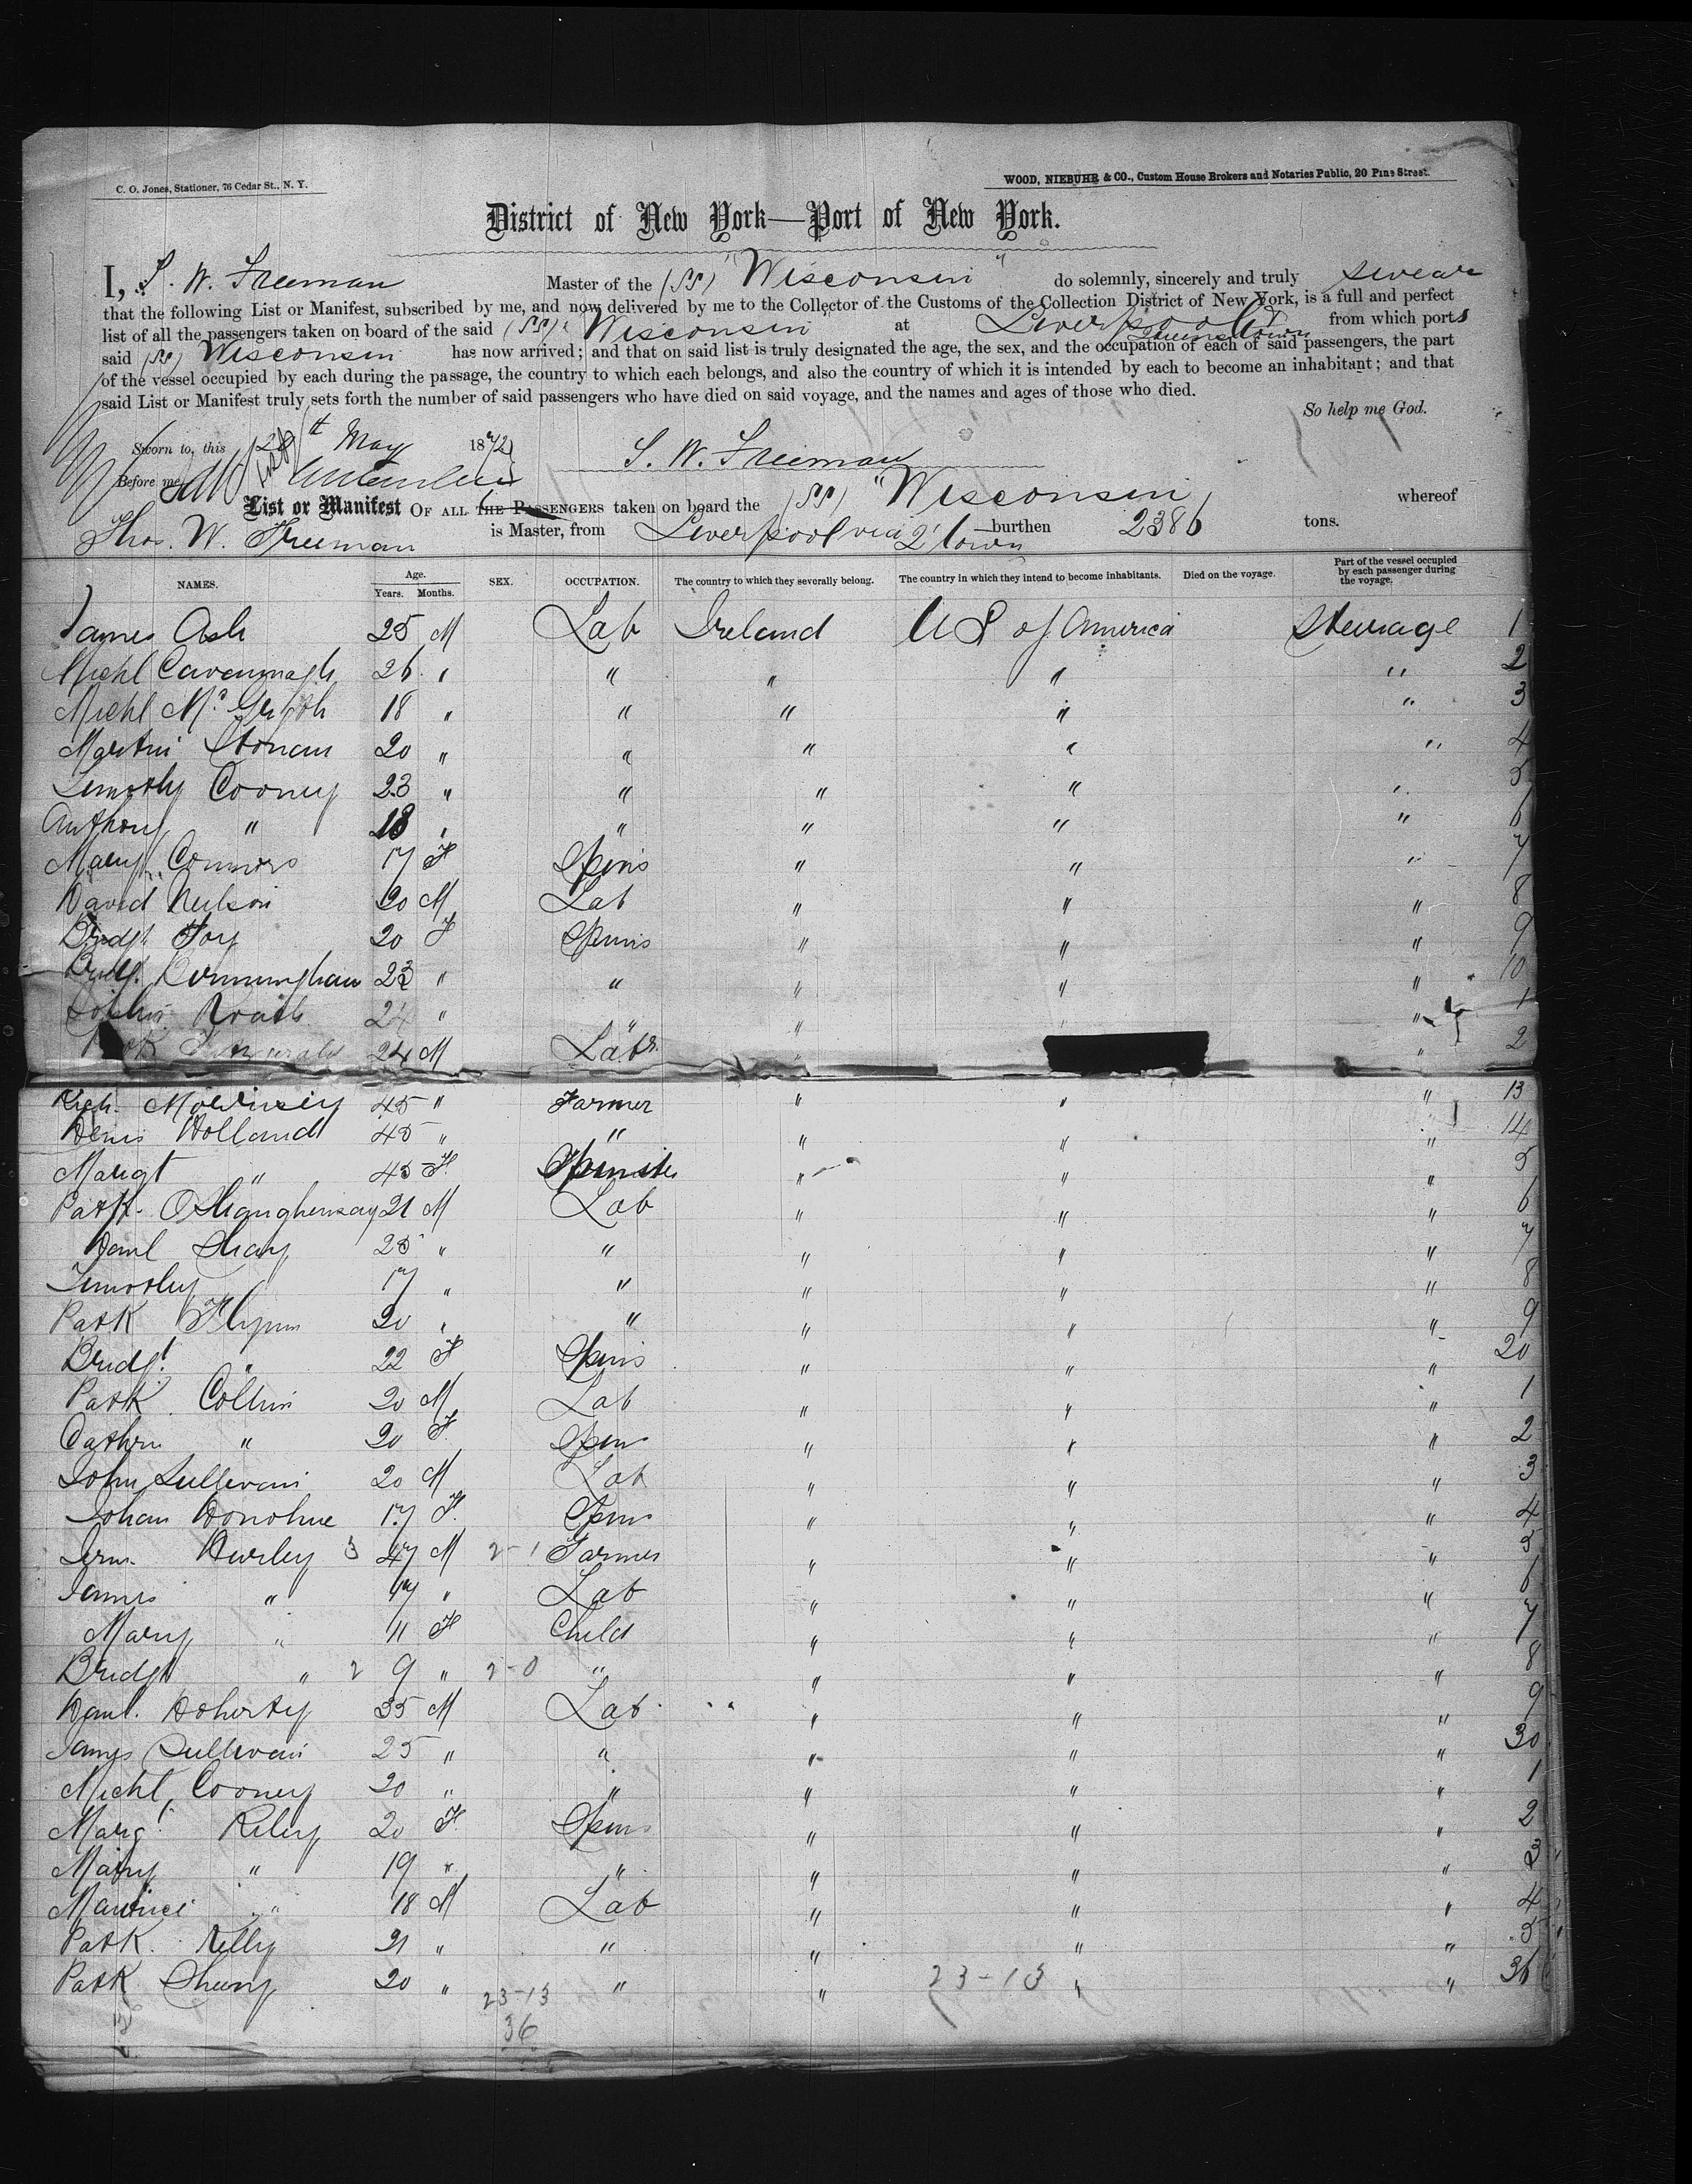 C. O. Jones, Stationer, 76 Cedar St., N. Y.
WOOD, NIEBUHR & CO., Custom House Brokers and Notaries Public, 20 Pine Street.
District of New York—Port of New York.
I, T. W. Freeman Master of the (SS) "Wisconsin" do solemnly, sincerely and truly swear
that the following List or Manifest, subscribed by me, and now delivered by me to the Collector of the Customs of the Collection District of New York, is a full and perfect
list of all the passengers taken on board of the said (SS) Wisconsin at Liverpool & Queenstown from which ports
said (SS) Wisconsin has now arrived; and that on said list is truly designated the age, the sex, and the occupation of each of said passengers, the part
of the vessel occupied by each during the passage, the country to which each belongs, and also the country of which it is intended by each to become an inhabitant; and that
said List or Manifest truly sets forth the number of said passengers who have died on said voyage, and the names and ages of those who died.
So help me God.
Sworn to, this th May 1872
Before me
T. W. Freeman
List or Manifest OF ALL THE PASSENGERS taken on board the (SS) "Wisconsin, whereof
Thos. W. Freeman is Master, from Liverpool via Q'town burthen 2386 tons.
NAMES. Age. Years. Months. SEX. OCCUPATION. The country to which they severally belong. The country in which they intend to become inhabitants. Died on the voyage. Part of the vessel occupied by each passenger during the voyage.
James Ash 25 M Lab Ireland US of America Steerage 1
Michl Cavannagh 26 " " " " " 2
Michl 18 " " " " " 3
Martin 20 " " " " " 4
Timothy Cooney 23 " " " " " 5
Anthony " 18 " " " " " 6
Mary Connors 17 F Spins " " " 7
David Neilson 20 M Lab " " " 8
Bridgt Foy 20 F Spins " " " 9
Bridgt Birmingham 23 " " " " " 10
24 " " " " " 1
24 M Labr. " " " 2
45 " Farmer " " " 13
Denis Holland 45 " " " " " 14
Margt " 45 F. Spinster " " " 5
Patk. OShaughensay 21 M Lab " " " 6
Danl Shay 25 " " " " " 7
Timothy 17 " " " " " 8
Patk Flynn 20 " " " " " 9
Bridgt " 22 F Spins " " " 20
Patk Collins 20 M Lab " " " 1
Cathrn " 20 F. Spins " " " 2
John Sullivan 20 M Lab " " " 3
Johan Donohue 17 F. Spins " " " 4
Jerm. Hurley 3 47 M 2-1 Farmer " " " 5
James " 17 " Lab " " " 6
Mary " 11 F Child " " " 7
Bridgt " 2 9 " 2-0 " " " " 8
Danl. Doherty 35 M Lab " " " 9
James Sullivan 25 " " " " " 30
Michl Cooney 20 " " " " " 1
Margt Riley 20 F. Spins " " " 2
Mary " 19 " " " " " 3
Maurice " 18 M Lab " " " 4
Patk. Kelly 21 " " " " " 5
Patk Sheeny 20 " " " 23-13 " " 36
23-13
36